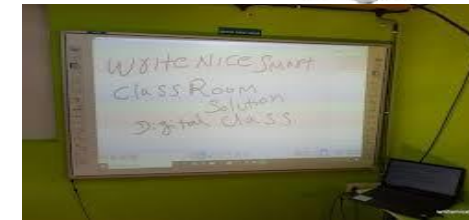 Write Nice Smart
Class Room
Solution
Digital Class